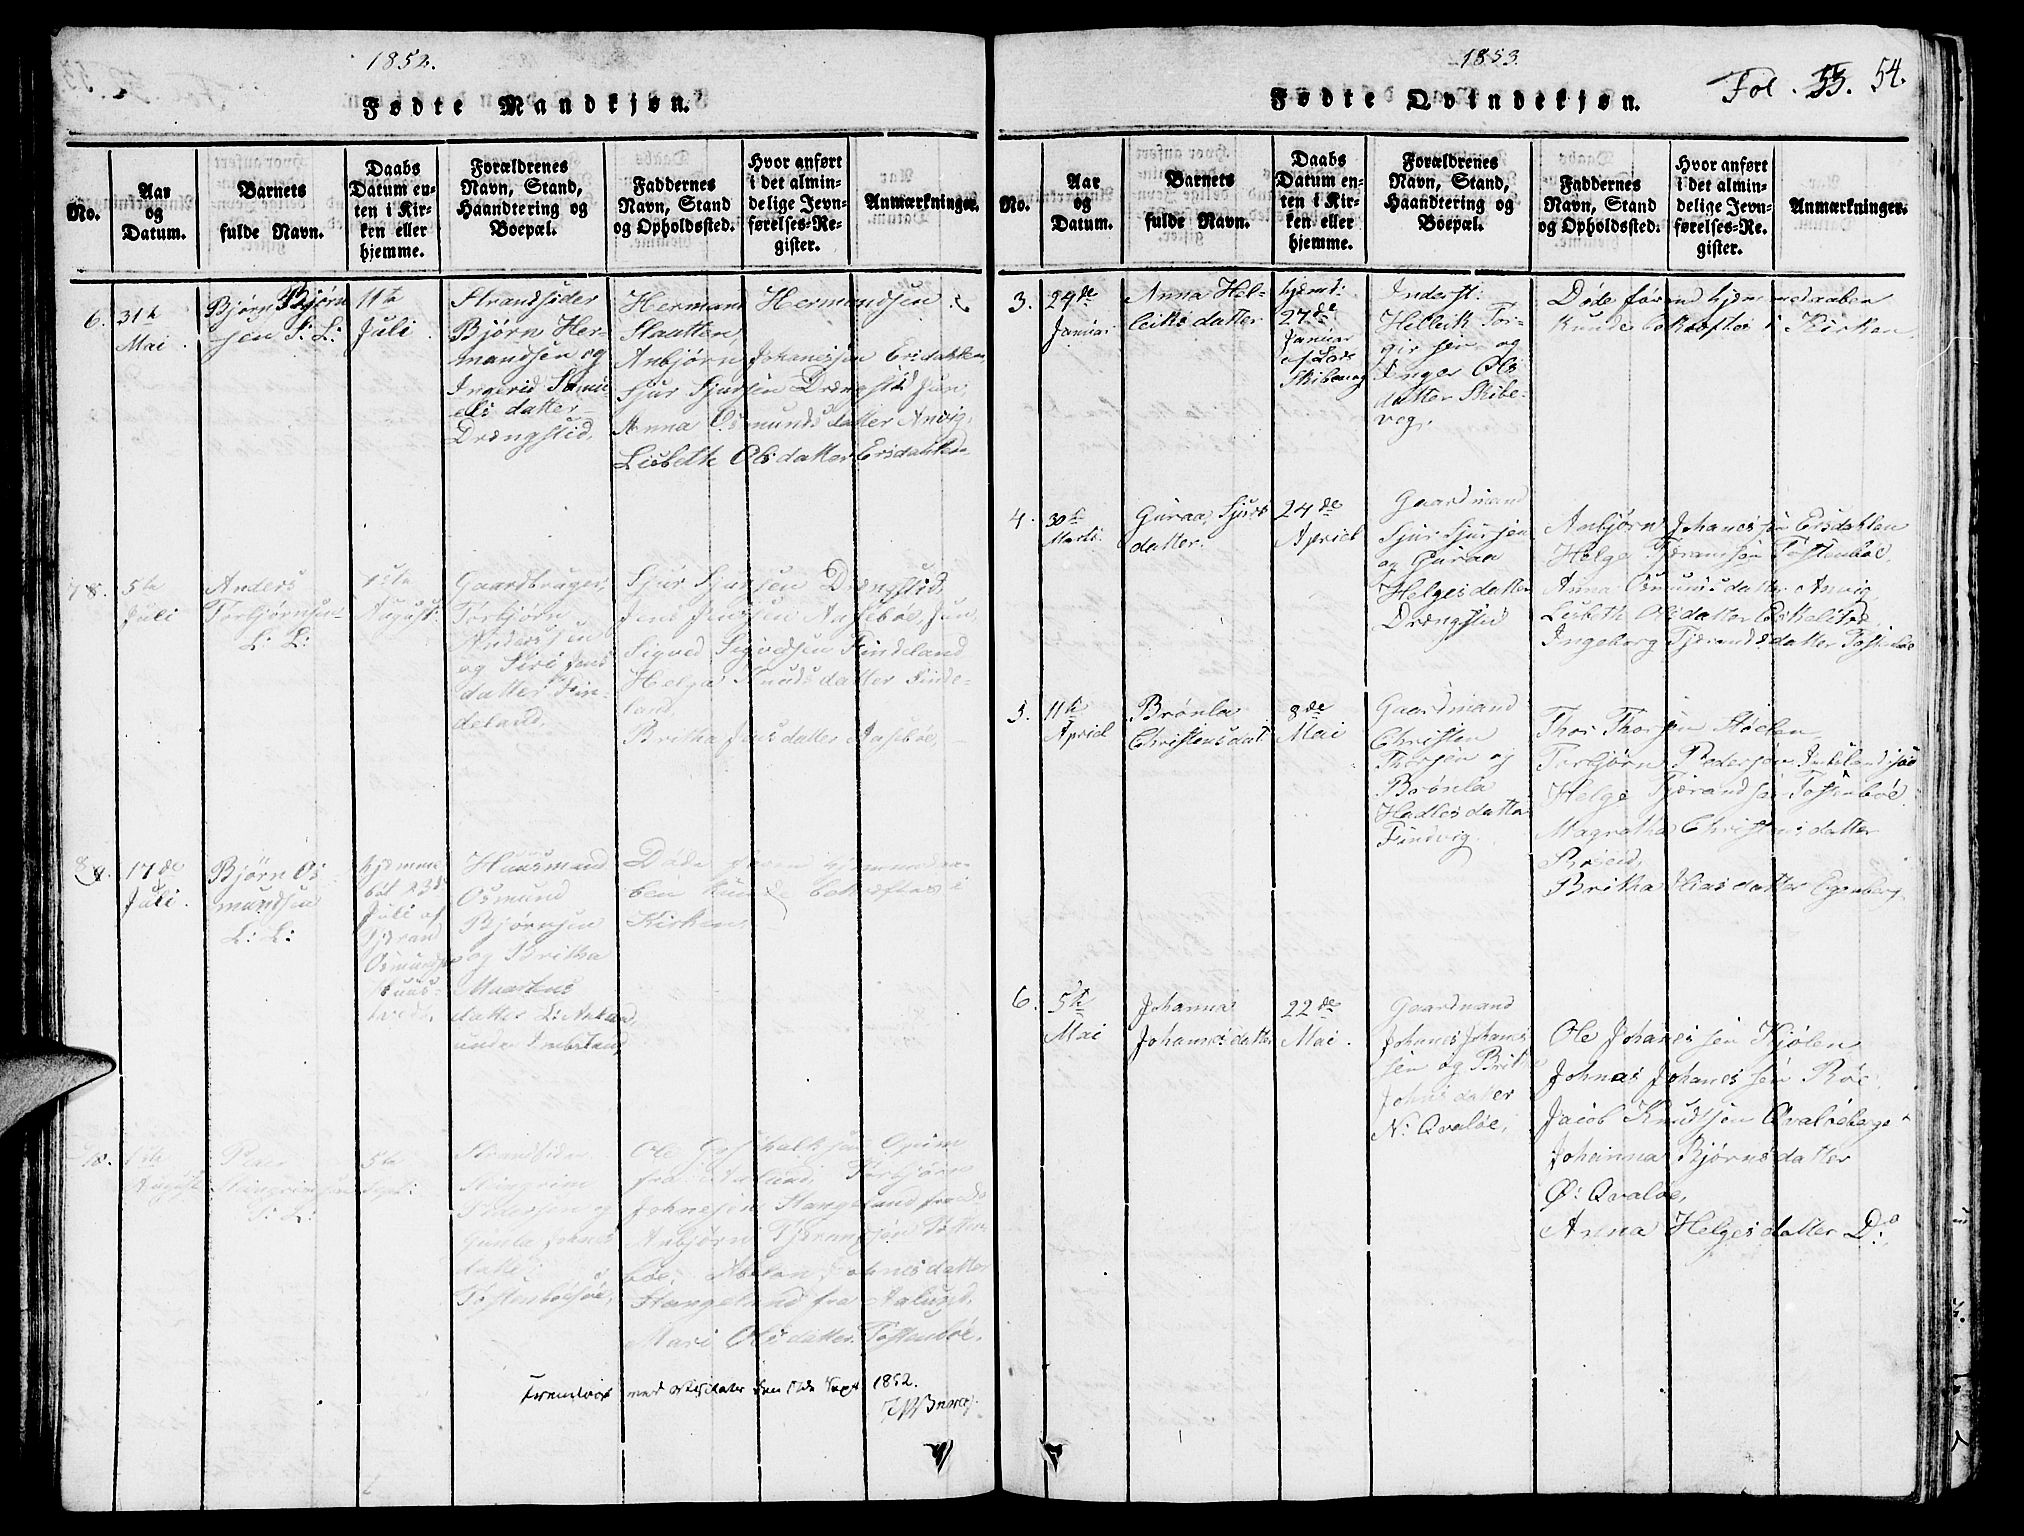 1852.
Fødte Mandkjøn.
No.
Aar
og
Datum.
Barnets
fulde Navn.
Daabs
Datum en-
ten i Kir-
ken eller
hjemme.
Forældrenes
Navn, Stand,
Haandtering og
Boepæl.
Faddernes
Navn, Stand
og Opholdssted.
Hvor anført
i det almin-
delige Jevn-
førelses-Re-
gister.
Anmærkninger.
6.
31te
Mai
Bjørn Bjørn
sen S: L:
11te
Juli
Strandsider
Bjørn Her-
mandsen og
Ingerid Samu-
els datter
Drængstid,
Hermand Hermandsen
Slaatten,
Anbjørn Johanessen Ersdahlen,
Sjur Sjursen Drængstid Jun,
Anna Osmunds datter Anvig,
Lisbeth Ols datter Ersdahlen
78.
5te
Juli
Anders
Torbjørnsen
L: L:
1ste
August.
Gaardbruger,
Torbjørn
Andersen
og Siri Jens
datter Fin-
deland.
Sjur Sjursen Drængstid,
Jens Jensen Aasebøe, Jun,
Sigved Sigvedsen Findeland
Helga Knuds datter Finde-
land,
Britha Jens datter Aasebøe,
8.
17de
Juli.
Bjørn Os-
mundsen
L: L:
hjemme
døbt 23de
Juli af
Tjerand
Osmundsen
Huusmand
Osmund
Bjørnsen
og Britha
datter
under
Døde førend hjemmedaa-
ben kunde bekræftes i
Kirken,
1ste
August
Peder
Stengrimsen
S: L:
5te
Sept:
Strandsider
Stengrim
Pedersen og
Gunla Johnes
datter
Tostenbøesøe,
Ole
fra Aalund, Torbjørn
Johnesen Hangeland fra do
Anbjørn Tjerandsen Tosten-
bøe, Johnes datter
Hangeland fra Aalund,
Mari Ols datter Tostenbøe.
Fremlagt ved Visitats den Sept 1852.
1853.
Fødte Qvindekjøn.
Fol. 53. 54.
No.
Aar
og
Datum.
Barnets
fulde Navn.
Daabs
Datum en-
ten i Kir-
ken eller
hjemme.
Forældrenes
Navn, Stand,
Haandtering og
Boepæl.
Faddernes
Navn, Stand
og Opholdssted.
Hvor anført
i det almin-
delige Jevn-
førelses-Re-
gister.
Anmærkninger.
3.
24de
Januar
Anna Hel-
leiks datter
hjemd:
27de
Januar
af Lars
Skibevog
Inderst:
Helleik Tor-
girsen og
Inger Ols
datter Skibe-
vog,
Døde førend hjemmedaaben
kunde bekræftes i Kirken.
4.
30te
Marts.
Guraa Sjurs
datter.
24de
April
Gaardmand
Sjur Sjursen
og Guraa
Helges datter
Drængstid
Anbjørn Johanessen Ersdahlen
Helge Tjerandsen Tostenbøe,
Anna Osmunds datter Anvig
Lisbeth Ols datter Eskelstød
Ingeborg Tjærands datter Tostenbøe
5.
11te
April
Brønla
Christens dat
8de
Mai
Gaardmand
Christen
Thorsen og
Brønla
Hadles datter
Findvig.
Thor Thorsen Høelen,
Torbjørn Pedersen
Helge Tjærandsen Tostenbøe.
Magretha Christens datter
Røseid,
Britha Elias datter Egenberg
6.
5te
Mai
Johanna
Johannes datter
22de
Mai.
Gaardmand
Johanes Johanes
sen og Britha
Johns datter
N: Qvaløe,
Ole Johanessen Kjølen,
Johnas Johanessen Røe.
Jacob Knudsen Qvaløeberge
Johanna Bjørns datter
Ø: Qvaløe,
Anna Helges datter Do: